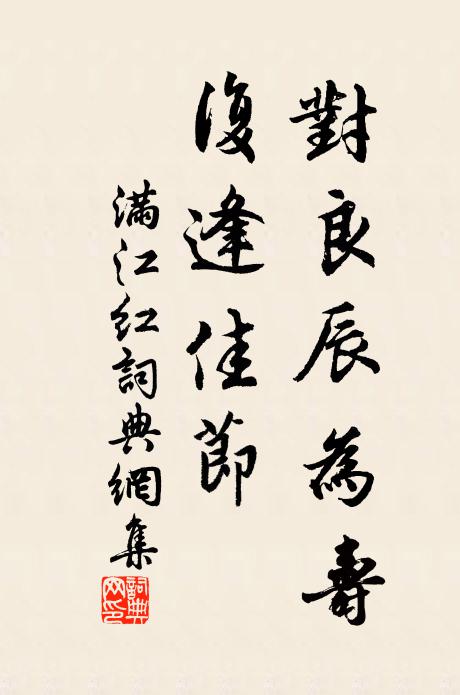 對良辰為壽
復逢佳節
滿江紅詞典網集
詞典网印